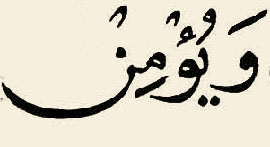 وَيُؤْمِنْ